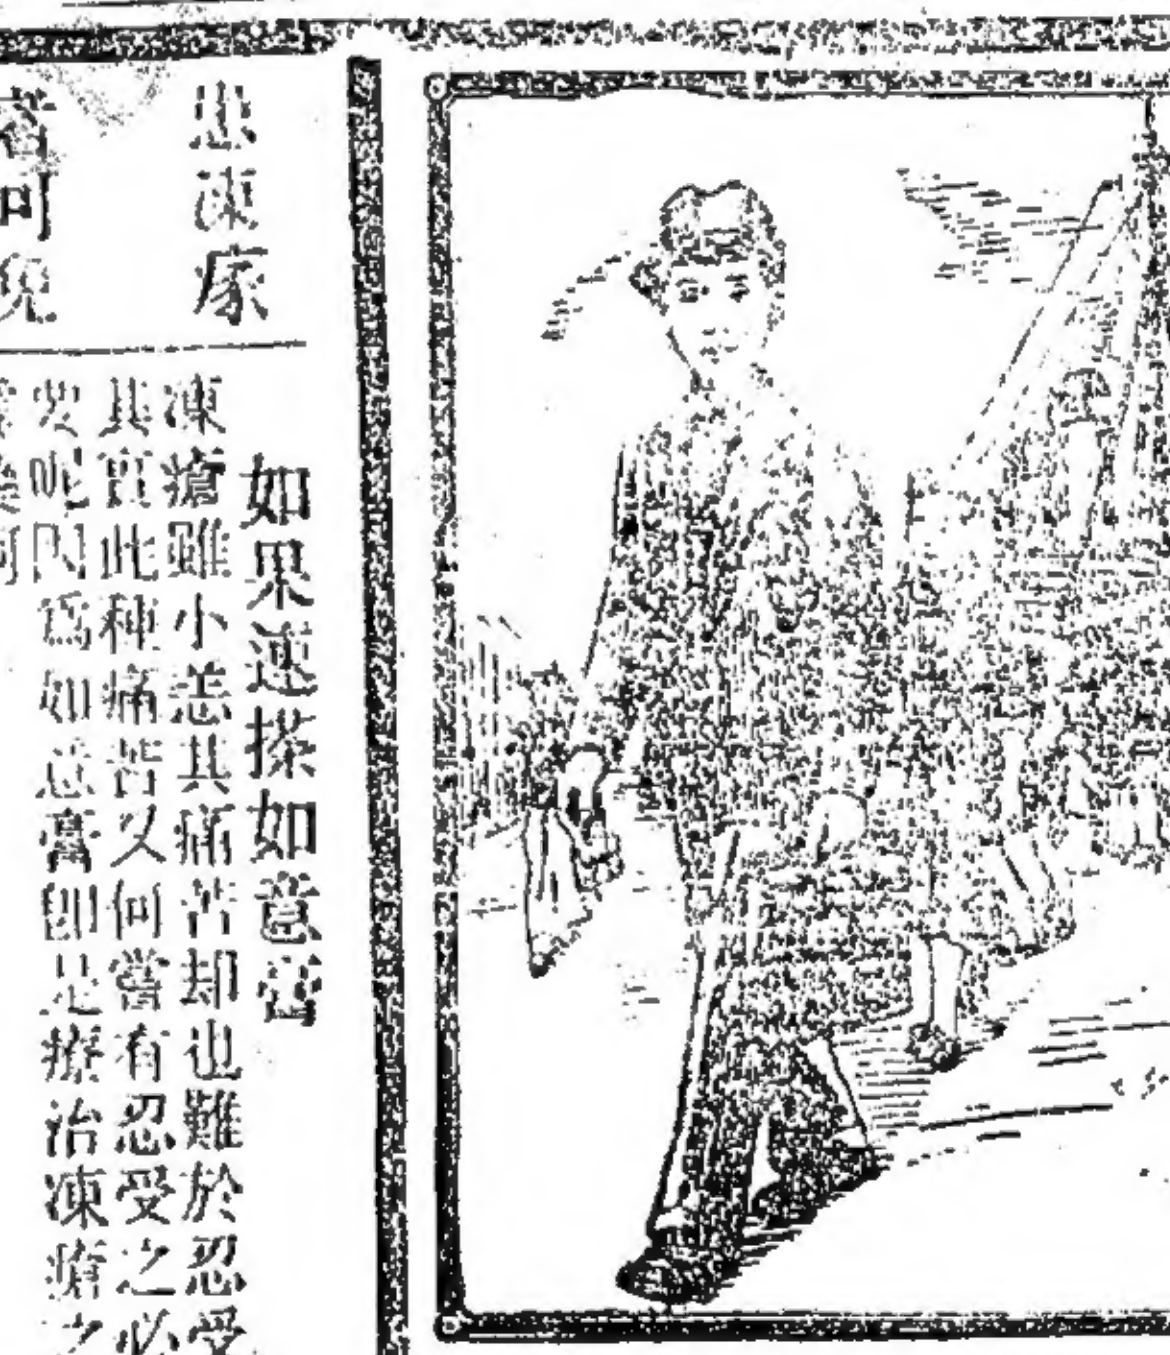 患凍瘃
如果速搽如意膏
凍瘡雖小恙其痛苦却也難於忍受
其實此種痛苦又何嘗有忍受之必
要呢因爲如意膏卽是療治凍瘡之